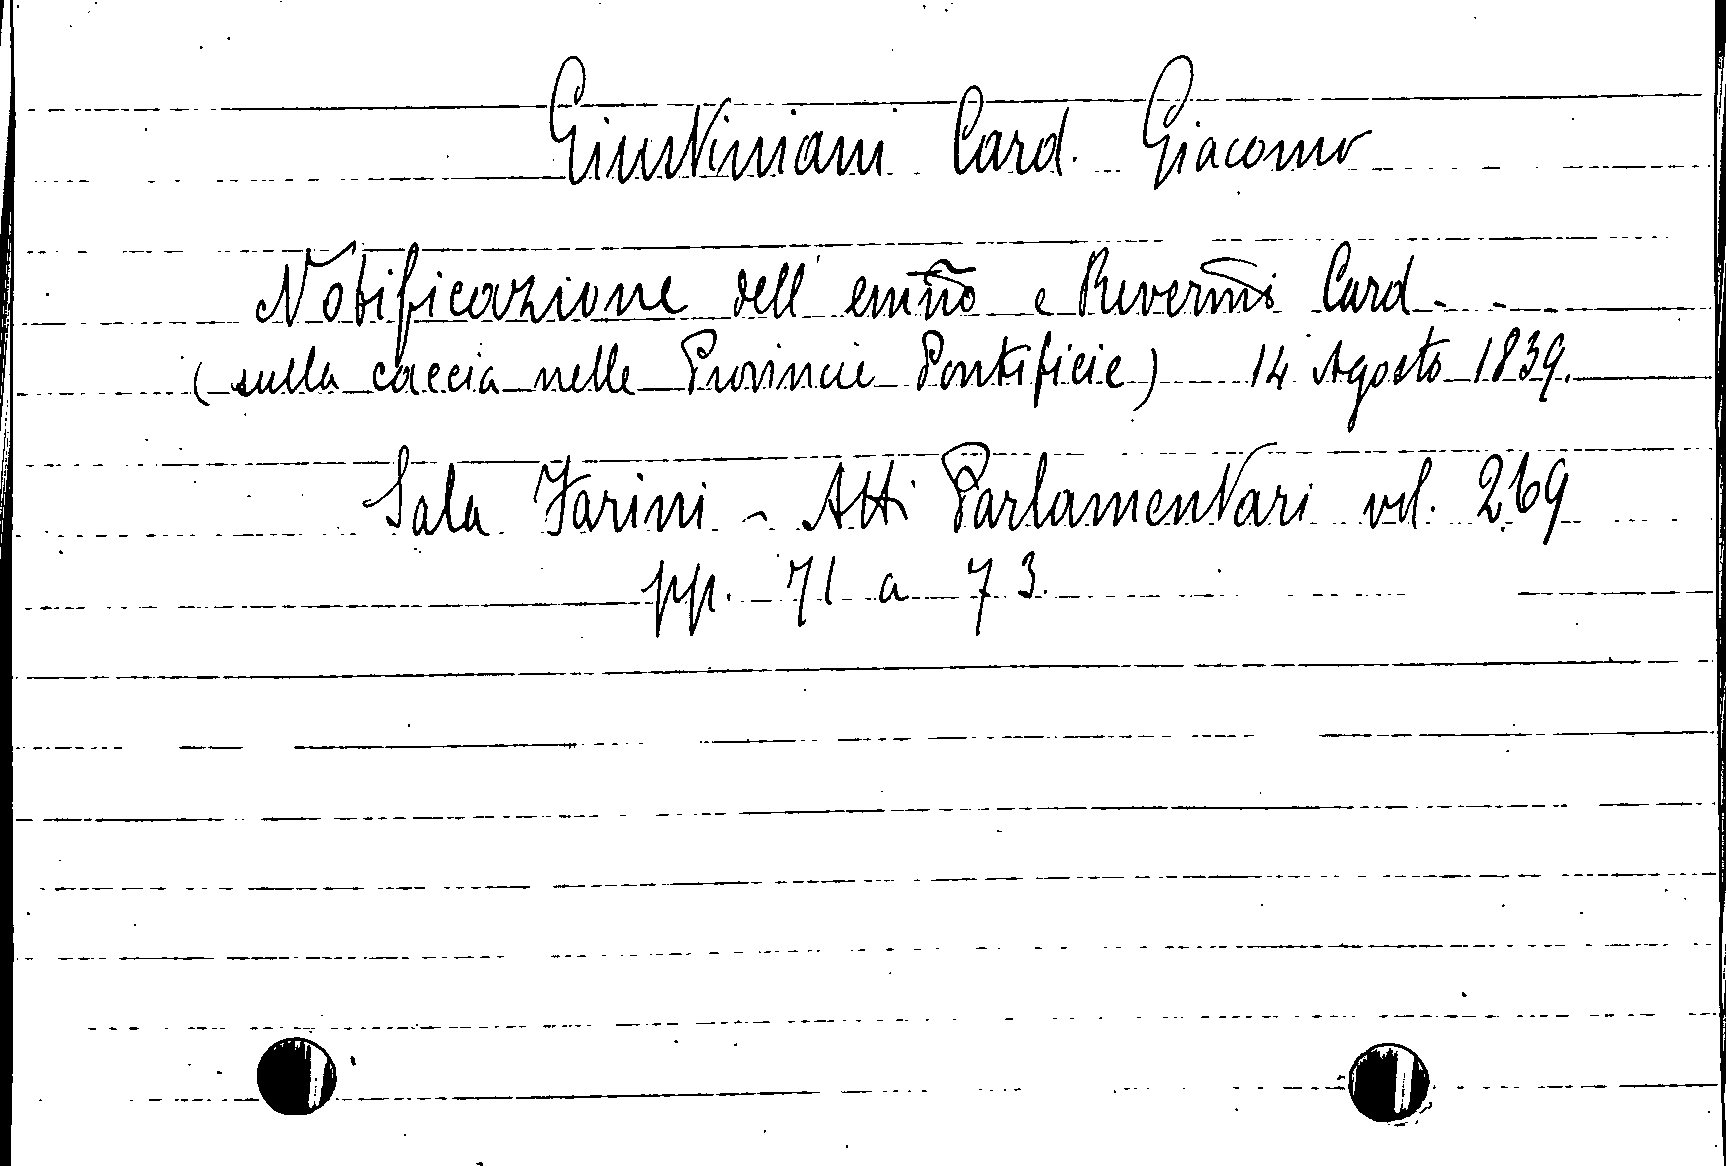 Giustiniani Card. Giacomo
Notificazione dell' emm̃o e Reverm̃o Card - -
(sulla caccia nelle Provincie Pontificie) 14 Agosto 1839.
Sala Farini - Atti Parlamentari vol. 269
pp. 71 a 73.